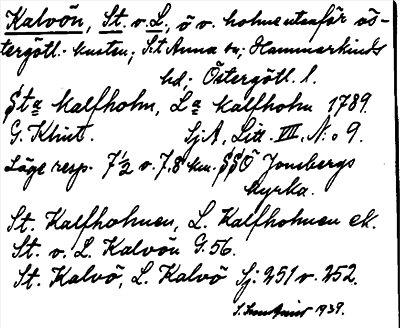 Kalvön, St. o. L., ö o. holme utanför ös-
tergötl. kusten; S:t Anna sn; Hammarkinds
hd. Östergötl. l.
Sta Kalfholm, La Kalfholm 1789.
G. Klint. SjA, Litt. VII, N:o 9.
Läge resp. 7 1/2 o. 7,8 km. SSÖ Jonsbergs
kyrka.
St. Kalfholmen, L. Kalfholmen ek.
St. o. L. Kalvön G. 56.
St. Kalvö, L. Kalvö Sj: 251 o. 252.
1939.